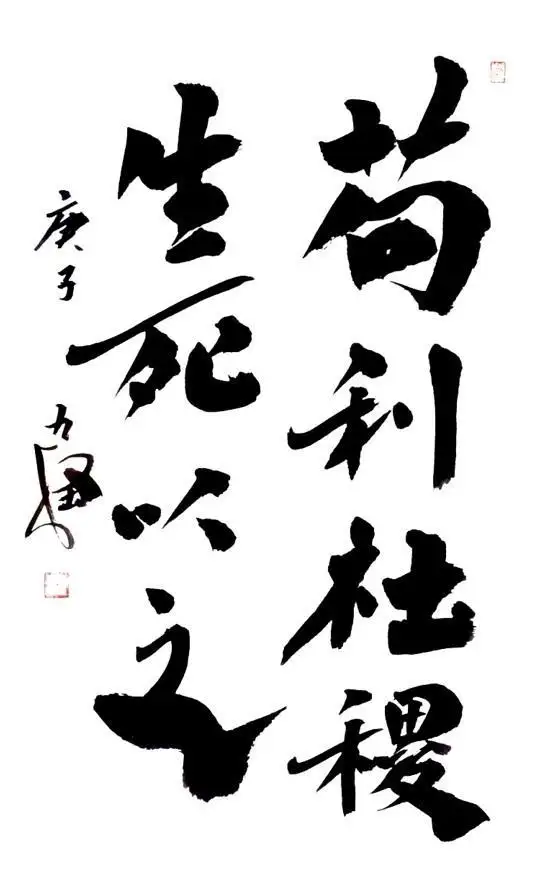 苟利社稷
生死以之
庚子